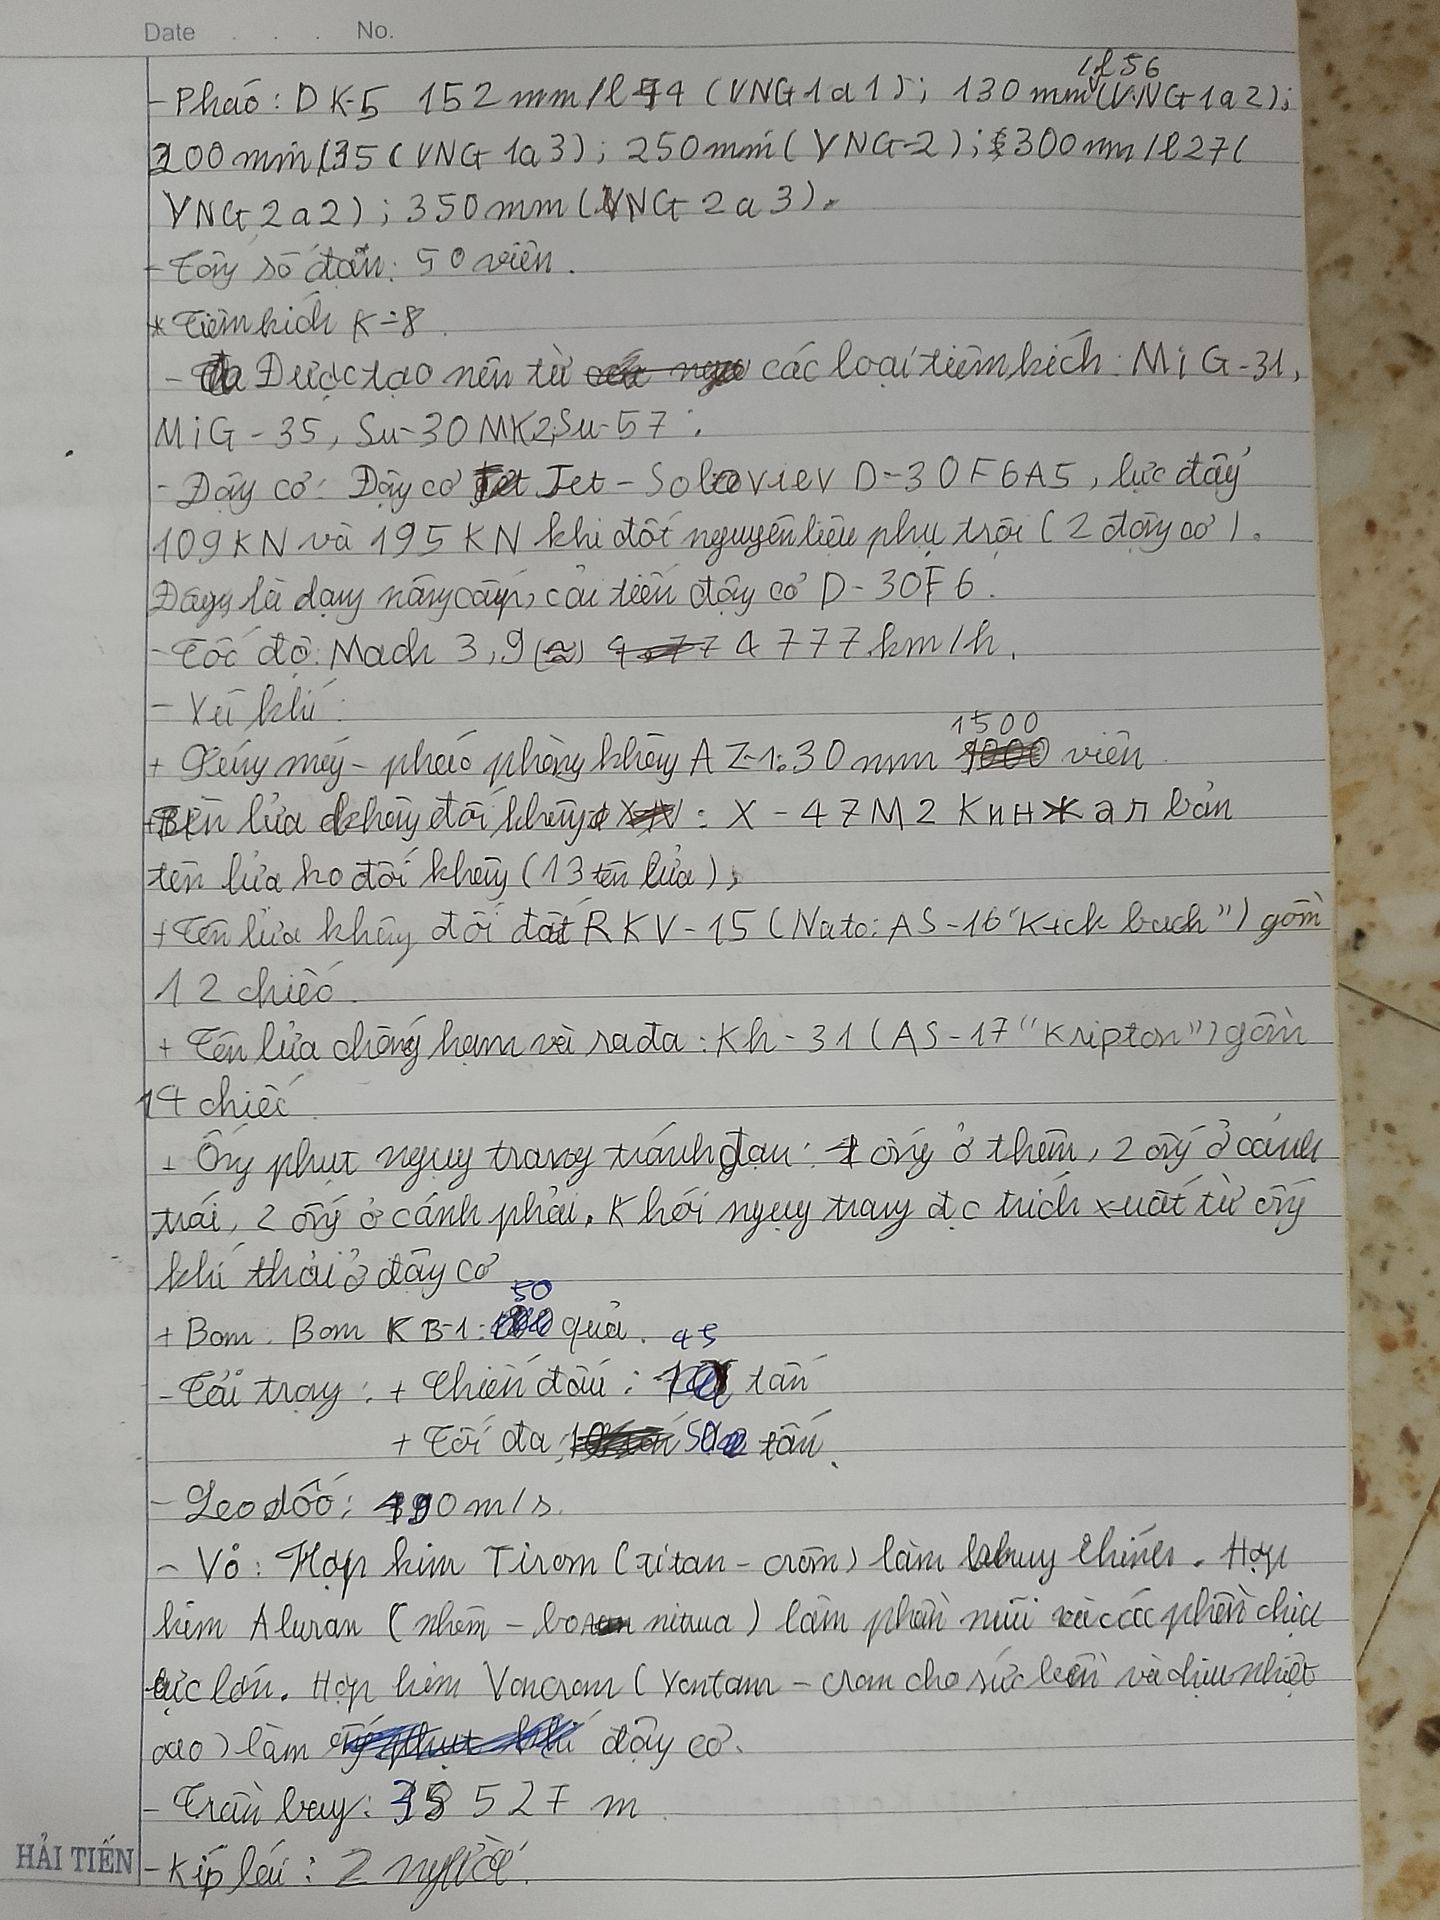 Date . . . No.
1l56
- Pháo: DK-5 152mm/l54 (VNG1a1); 130mm (VNG1a2);
200mm/35 (VNG1a3); 250mm (VNG-2); 300mm/l27(
VNG2a2); 350mm (VNG2a3).
- Tổng số đạn: 50 viên.
* Tiêm kích K-8.
- Được tạo nên từ các loại tiêm kích: MiG-31,
MiG-35, Su-30MK2, Su-57.
- Động cơ: Động cơ Jet - Soloviev D-30F6A5, lực đẩy
109KN và 195KN khi đốt nguyên liệu phụ trội (2 động cơ).
Đây là dạng nâng cấp, cải tiến động cơ D-30F6.
- Tốc độ: Mach 3,9 (≈) 4777km/h.
- Vũ khí:
1500
+ Súng máy - pháo phòng không AZ-1: 30mm viên.
+ Tên lửa không đối không: X-47M2 Кинжал bản
tên lửa ko đối không (13 tên lửa);
+ Tên lửa không đối đất RKV-15 (Nato: AS-16 "Kick back") gồm
12 chiếc.
+ Tên lửa chống hạm và rađa: Kh-31 (AS-17 "Kripton") gồm
14 chiếc.
+ Ống phụt ngụy trang tránh đạn: 4 ống ở thân, 2 ống ở cánh
trái, 2 ống ở cánh phải. Khói ngụy trang đc trích xuất từ ống
khí thải ở động cơ
50
+ Bom: Bom KB-1: quả.
45
- Tải trọng: + Chiến đấu: tấn
+ Tối đa: 50 tấn.
- Leo dốc: 190m/s.
- Vỏ: Hợp kim Tirom (titan - crôm) làm khung chính. Hợp
kim Aluran (nhôm - nitrua) làm phần mũi và các phần chịu
lực lớn. Hợp kim Voncrom (Vonfam - crom cho sức bền và chịu nhiệt
cao) làm động cơ.
- Trần bay: 527 m
- Kíp lái: 2 người.
HẢI TIẾN